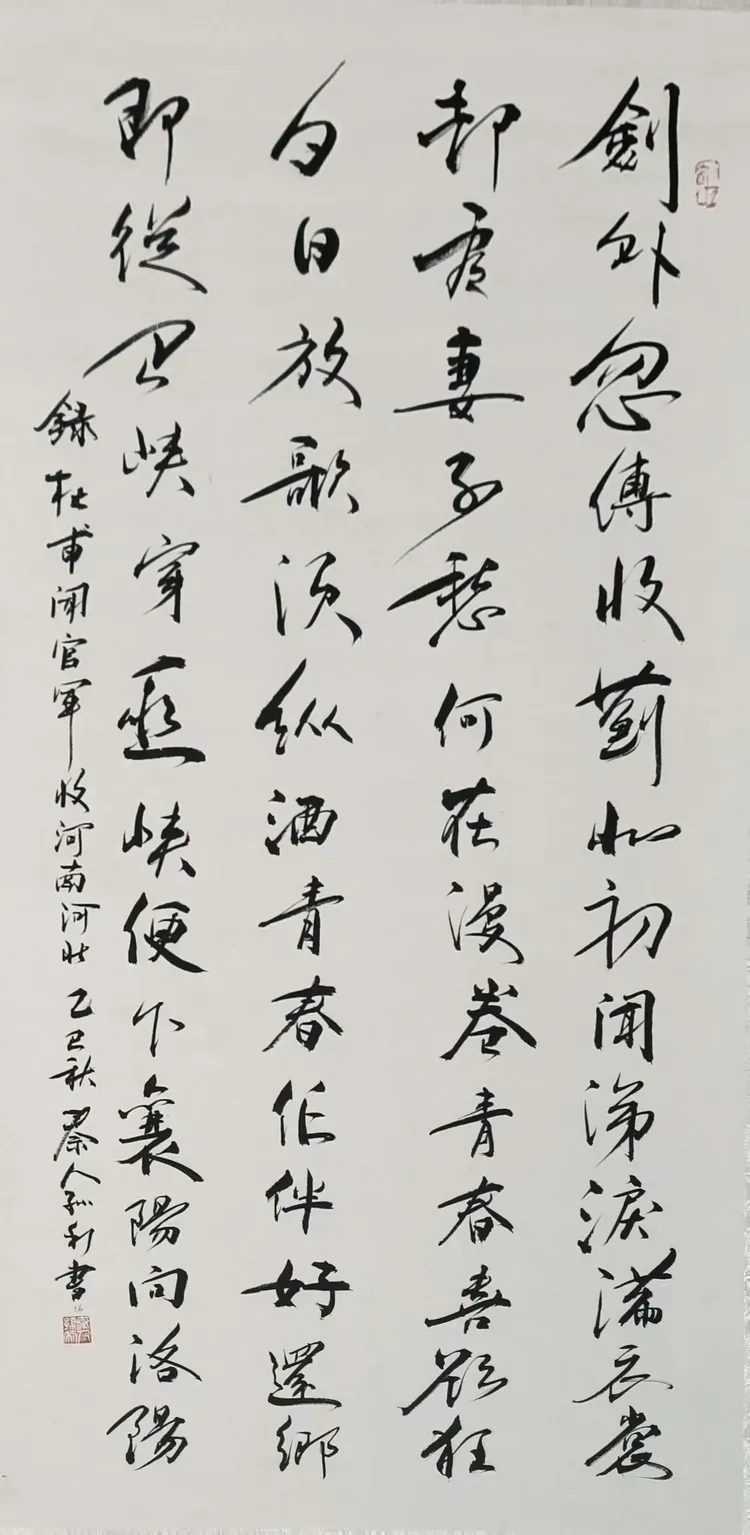 劍外忽傳收薊北初聞涕淚滿衣裳
却看妻子愁何在漫卷青春喜欲狂
白日放歌須纵酒青春作伴好還鄉
即從巴峽穿巫峽便下襄陽向洛陽
録杜甫聞官軍收河南河北乙巳秋人孫利書